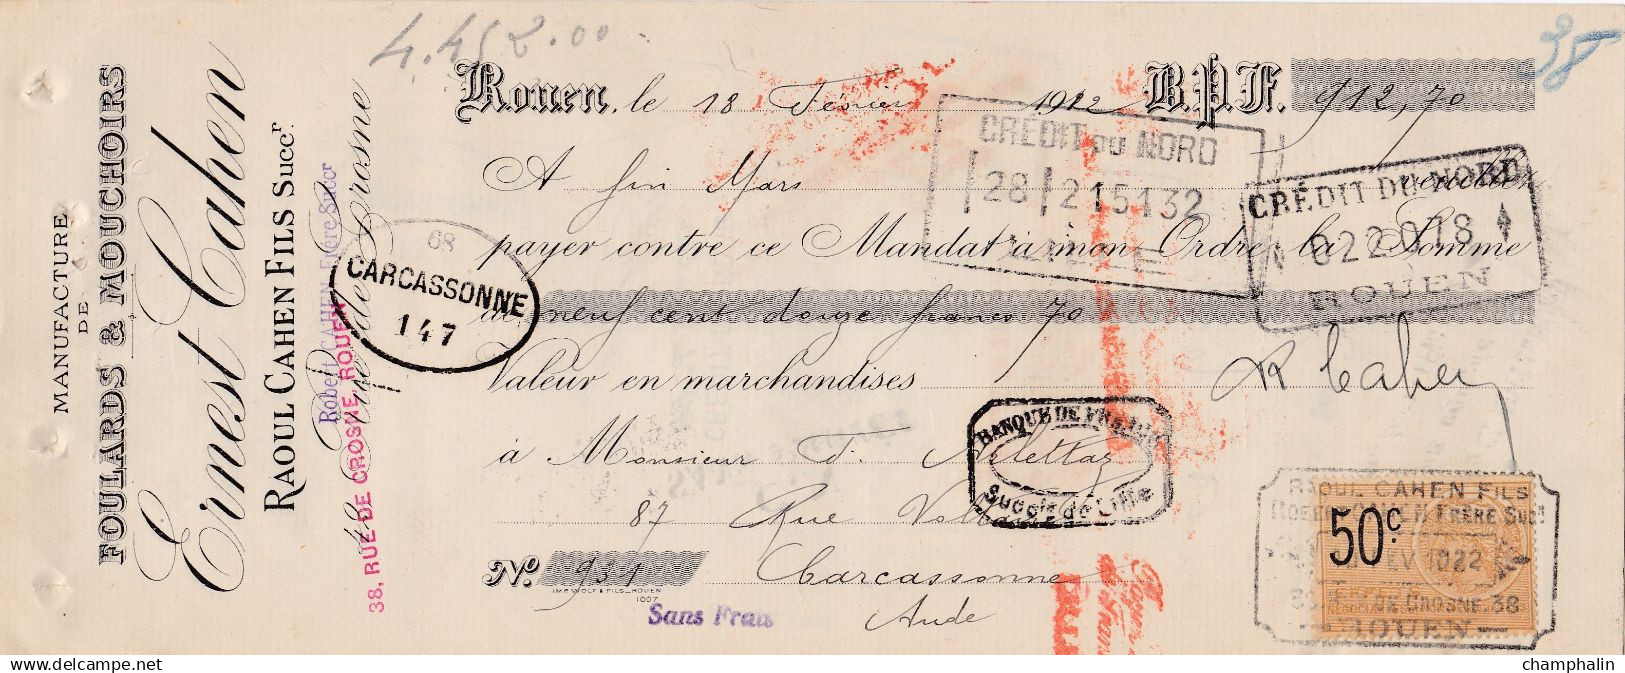 MANUFACTURE
DE
FOULARDS & MOUCHOIRS
Ernest Cahen
RAOUL CAHEN FILS Succr
Robert CAHEN Frère Succr
38, RUE DE CROSNE, ROUEN
4.452.00
38
Rouen, le 18 Février 1922 B.P.F. 912,70
A fin Mars
payer contre ce Mandat à mon Ordre la Somme
de neuf cent douze francs 70
Valeur en marchandises
R Cahen
à Monsieur F. Arlettaz
87 Rue
No 931 Carcassonne
Aude
IMP. WOLF & FILS_ROUEN
1007
Sans Frais
68
CARCASSONNE
147
CRÉDIT DU NORD
28 215132
CRÉDIT DU NORD
022078
ROUEN
BANQUE DE FRANCE
Succle de Lille
50c.
RAOUL CAHEN FILS
FRÈRE Succr
1922
DE CROSNE 38
ROUEN
champhalin